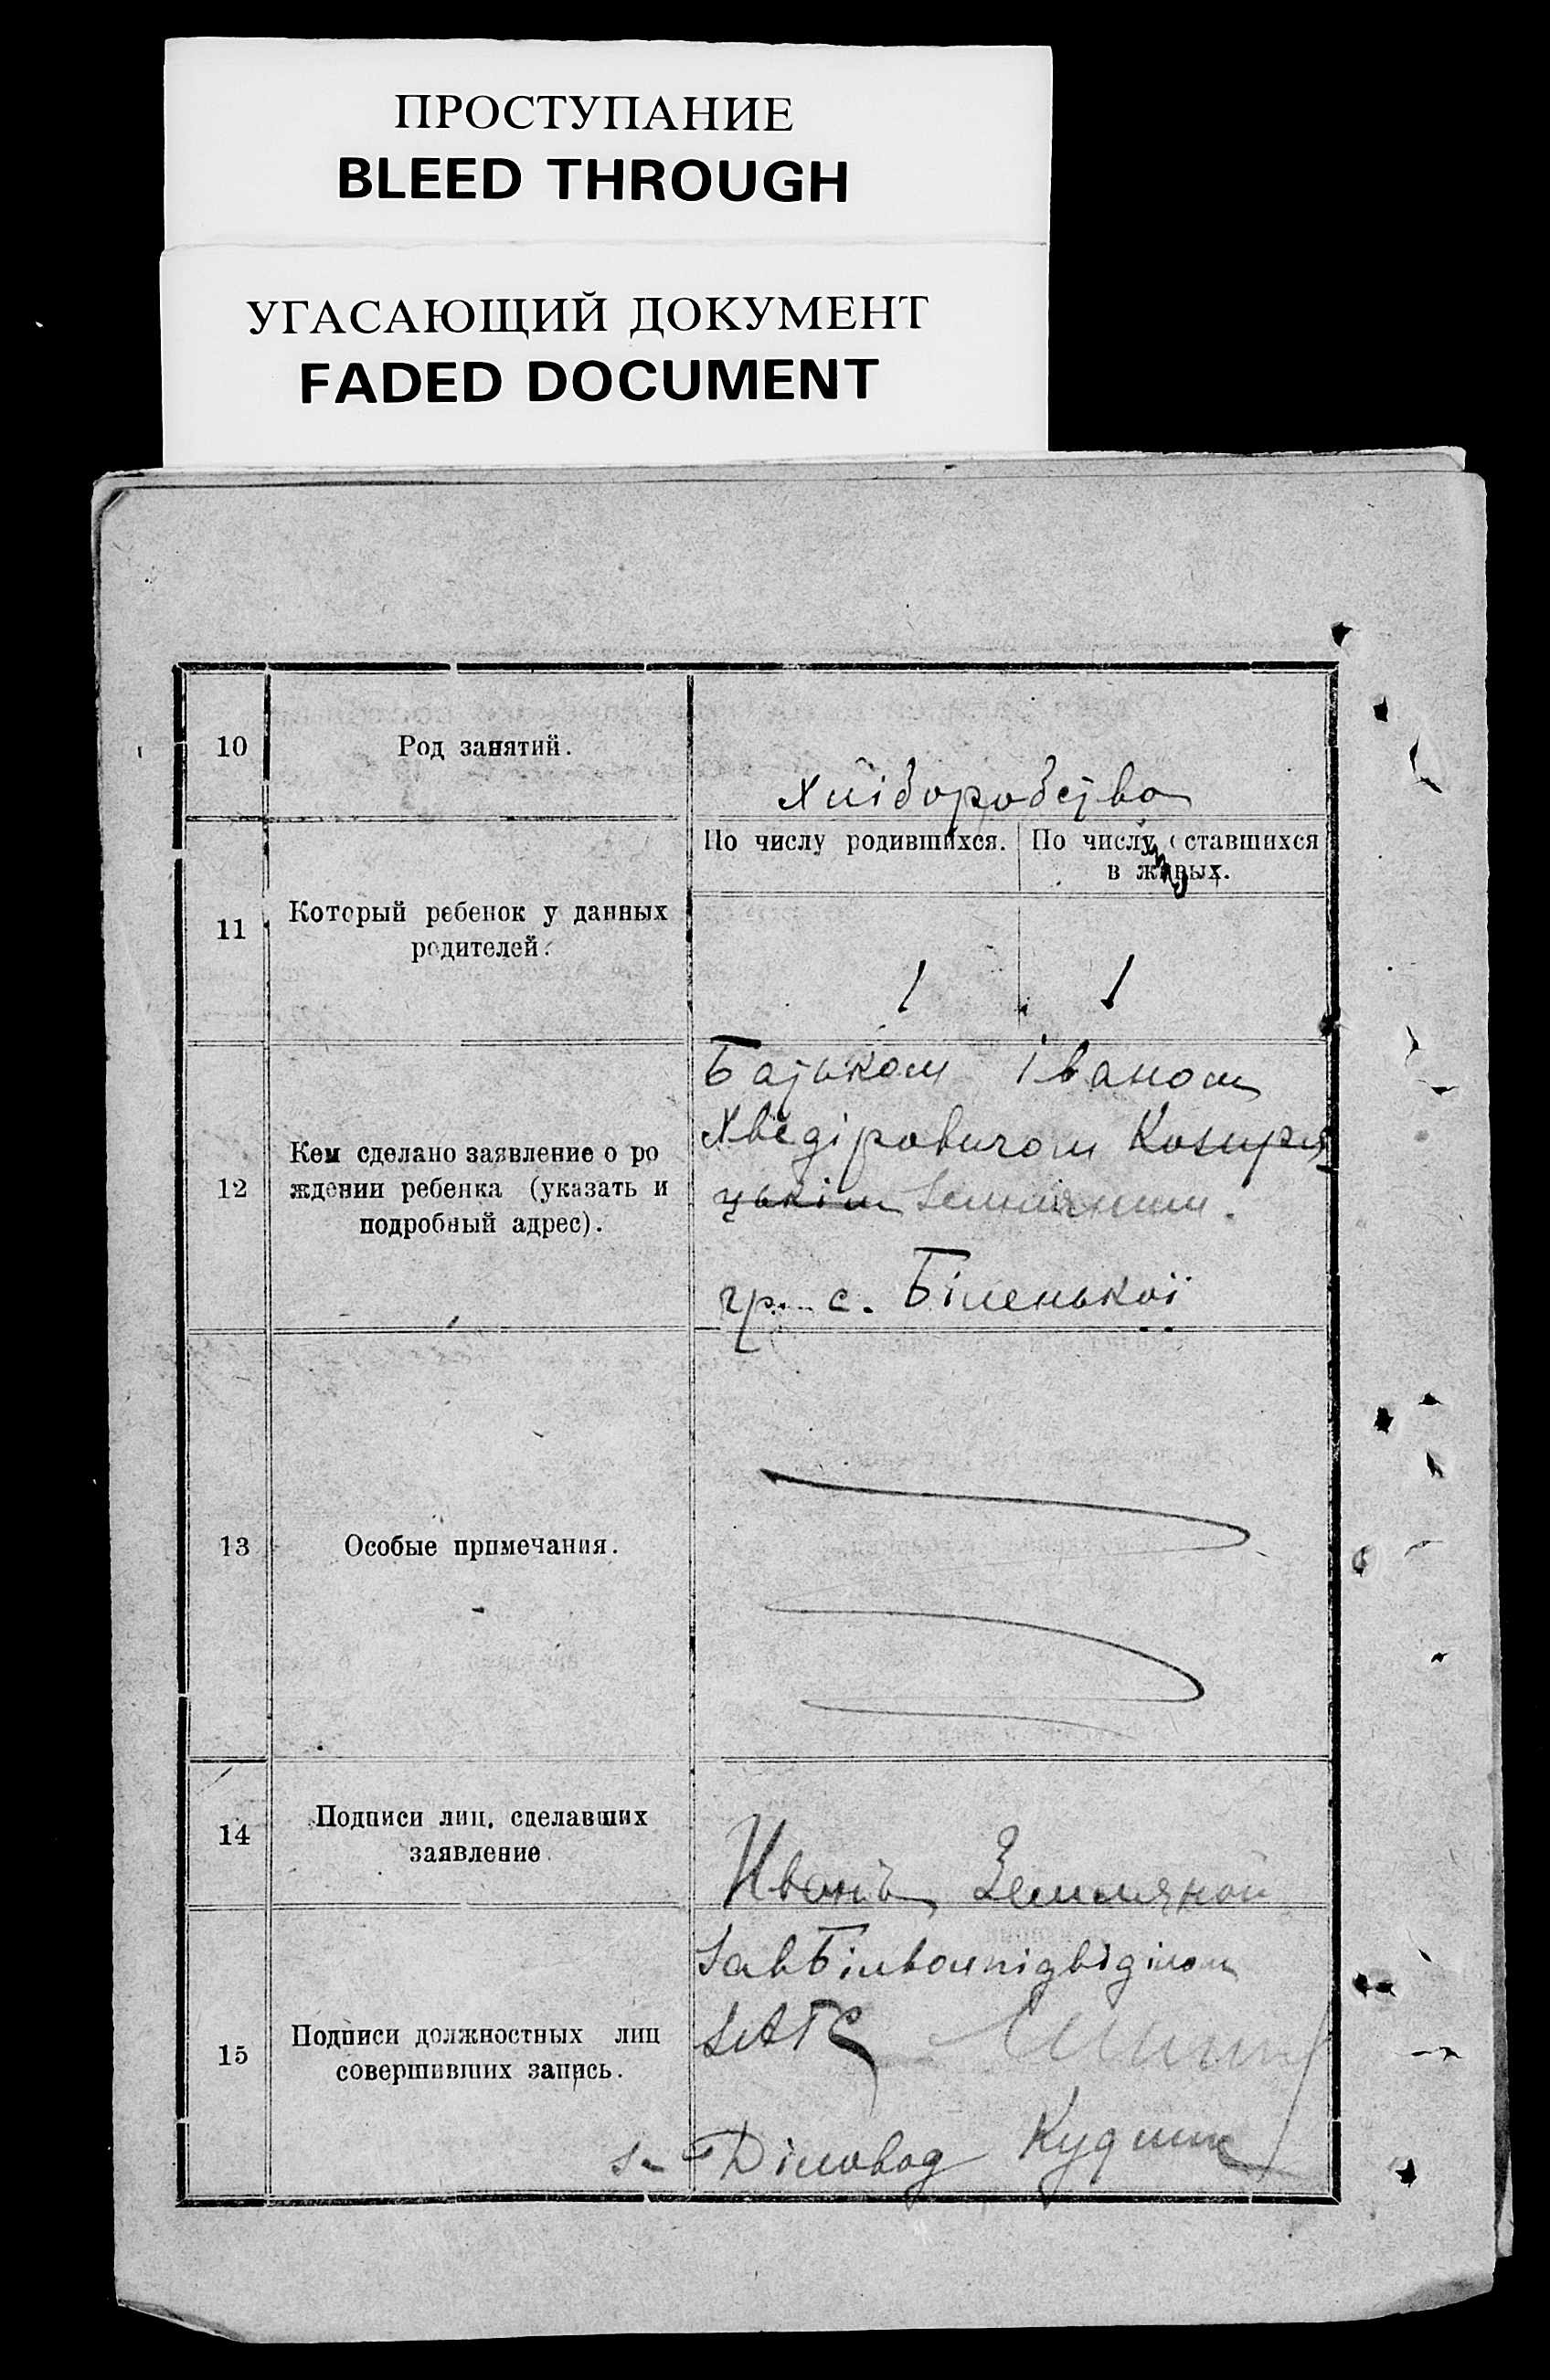 ПРОСТУПАНИЕ
BLEED THROUGH
УГАСАЮЩИЙ ДОКУМЕНТ
FADED DOCUMENT
10 Род занятий. Хліборобство
11 Который ребенок у данных родителей.
По числу родившихся. По числу оставшихся
в живых.
1 1
12 Кем сделано заявление о ро
ждении ребенка (указать и
подробный адрес).
Батьком Іваном
Хведіровичом Козиря
цькім Земляним.
гр. с. Біленької
13 Особые примечания.
14 Подписи лиц, сделавших
заявление
Иванъ Земляной
15 Подписи должностных лиц
совершивших запись.
Зав Білволпідвідділом
ЗАГС
Діловод Кудин